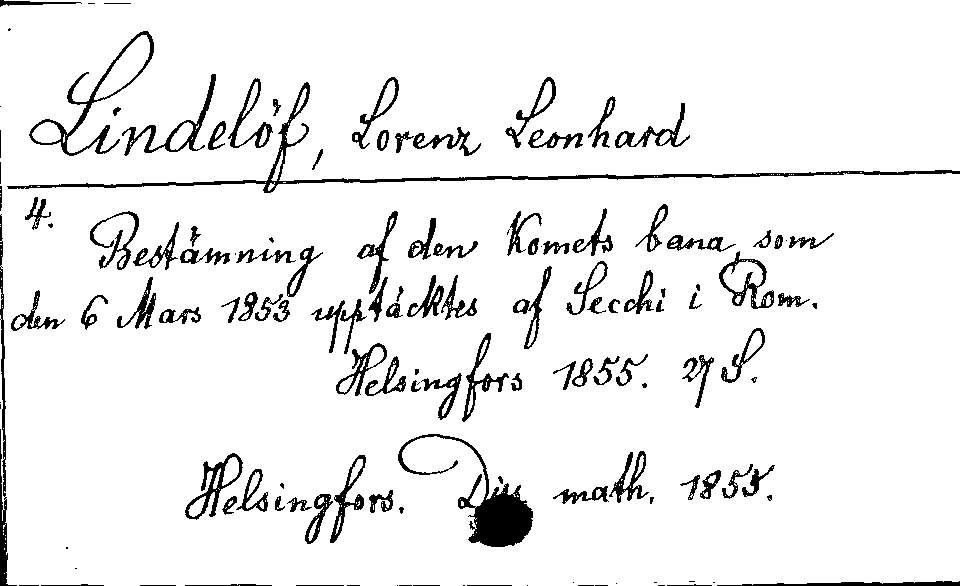 Lindelöf, Lorenz Leonhard
4.
Bestämning af den Komets bana, som
den 6 Mars 1853 upptäcktes af Secchi i Rom.
Helsingfors 1855. 27 S.
Helsingfors. Diss math. 1855.